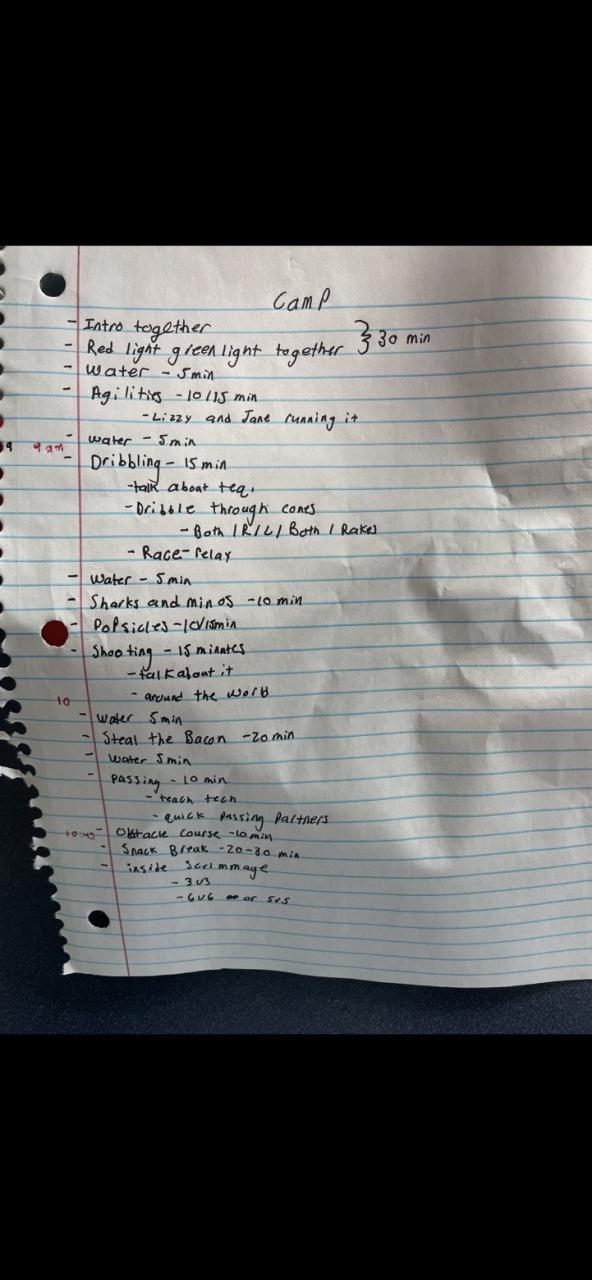 Camp
- Intro together
- Red light green light together } 30 min
- Water - 5min
- Agilities - 10/15 min
- Lizzy and Jane running it
9 9am - water - 5 min
- Dribbling - 15 min
- talk about teq.
- Dribble through cones
- Both / R / L / Both / Rakes
- Race-relay
- Water - 5 min
- Sharks and minos - 10 min
- Popsicles - 10/15min
- Shooting - 15 minutes
- talk about it
- around the world
10
- Water 5min
- Steal the Bacon - 20 min
- Water 5min
- Passing - 10 min
- teach tech
- quick passing Partners
10:45 - Obstacle course - 10 min
- Snack Break - 20-30 min
- inside Scrimmage
- 3v3
- 6v6 or 5v5